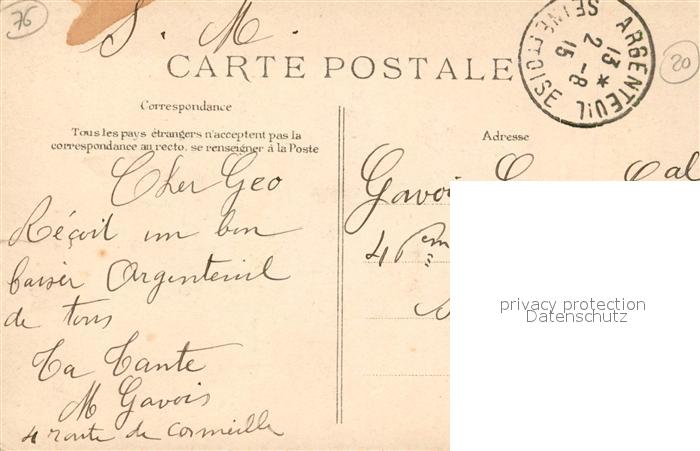 76
S. M.
CARTE POSTALE
ARGENTEUIL
SEINE ET OISE
13 *
2 - 8
15
20
Correspondance
Tous les pays étrangers n'acceptent pas la
correspondance au recto, se renseigner à la Poste
Cher Geo
Réçoit un bon
baiser Argenteuil
de tous
Ta Tante
M Gavois
4 route de Cormeille
Adresse
Gavois Cal
4
privacy protection
Datenschutz